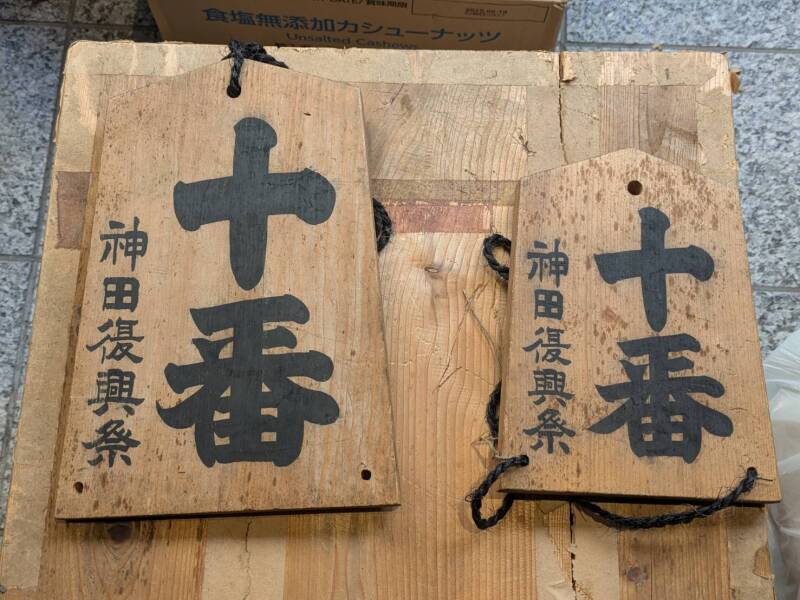 食塩無添加カシューナッツ
Unsalted Cashews
十番
神田復興祭
十番
神田復興祭